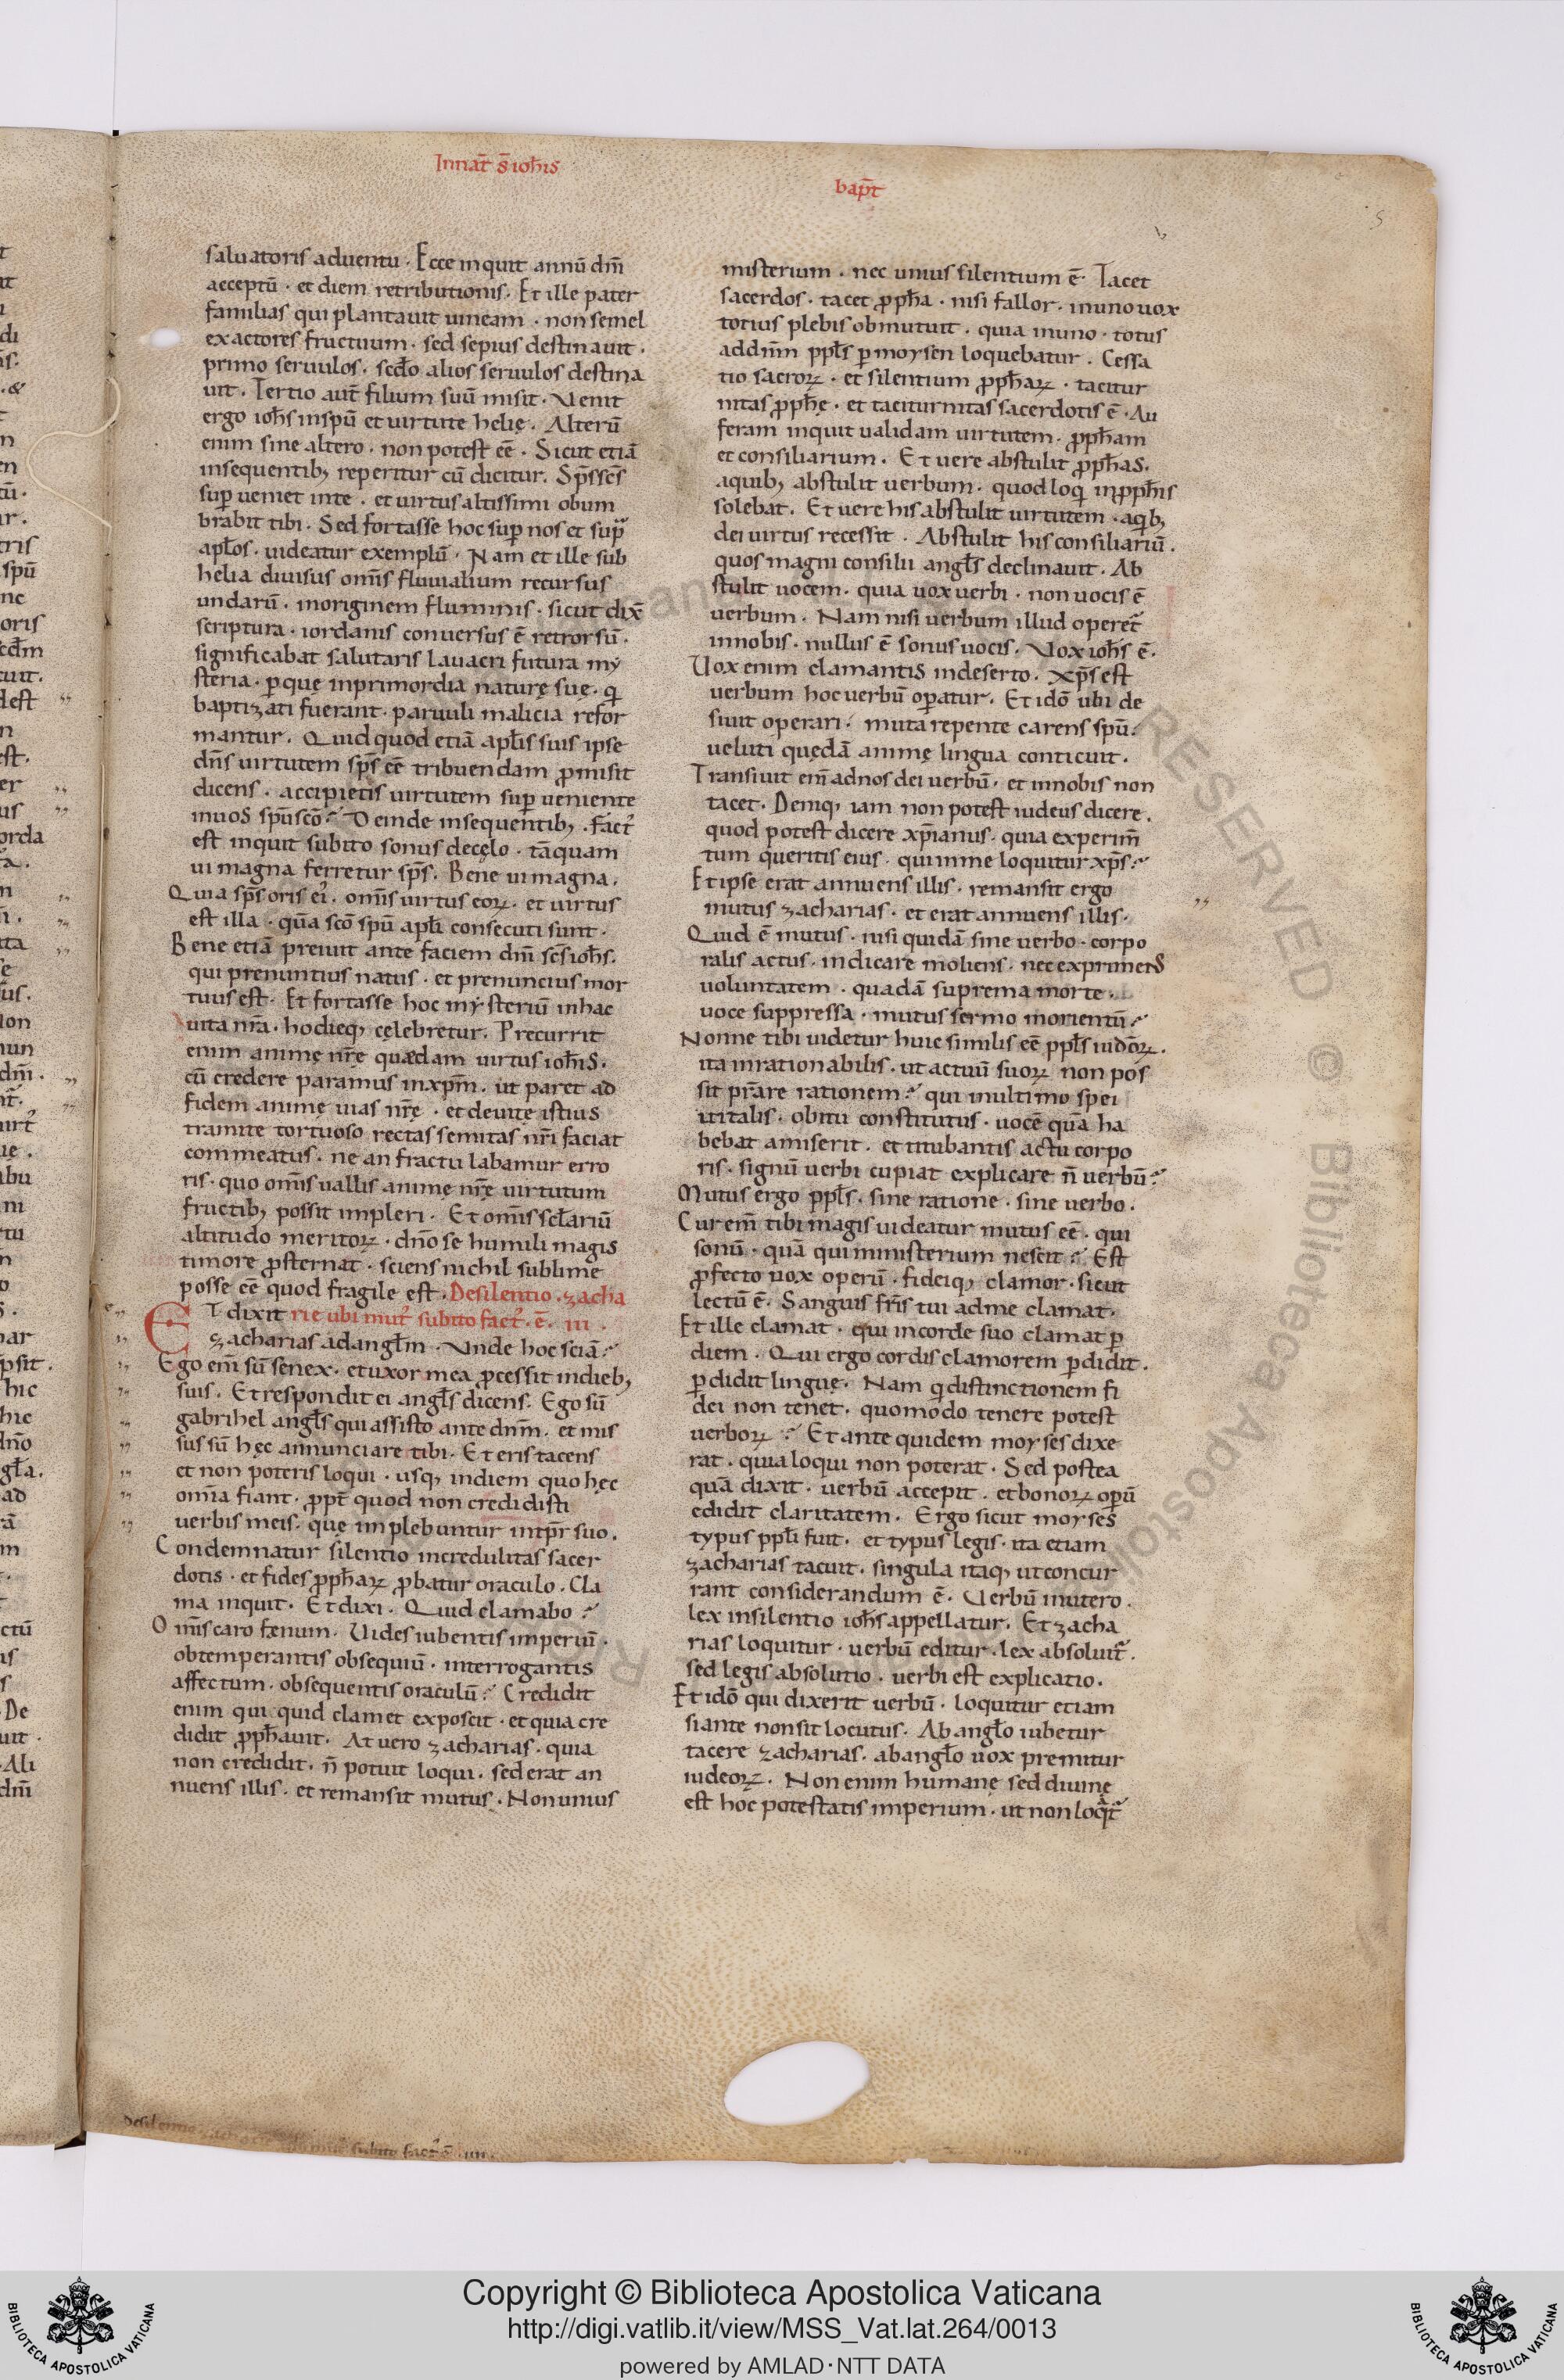 Innat̄ s̄ ioħis
bap̄t
5
saluatoris aduentu . Ecce inquit annū dm̄
acceptū . et diem retributionis. Et ille pater
familias qui plantauit uineam . non semel
exactores fructuum . sed sepius destinauit .
primo seruulos . scđo alios seruulos destina
uit . Tertio aut̄ filium suū misit . Venit
ergo ioħs inspū et uirtute helię . Alterū
enim sine altero . non potest eē . Sicut etiā
insequentib; reperitur cū dicitur. Sp̄s sc̄s
sup ueniet inte . et uirtus altissimi obum
brabit tibi . Sed fortasse hoc sup nos et sup̄
apłos . uideatur exemplū . Nam et ille sub
helia diuisus omīs fluuialium recursus
undarū . inoriginem fluminis . sicut dix̄
scriptura . iordanis conuersus ē retrorsū .
significabat salutaris lauacri futura my
steria . ꝑ quę inprimordia naturę suę . q̇
baptizati fuerant . paruuli malicia refor
mantur . Quid quod etiā apłis suis ipse
dn̄s uirtutem sp̄s eē tribuendam ꝓmisit
dicens . accipietis uirtutem sup ueniente
inuos sp̄usc̄o ؛ Deinde insequentib; . fact᾽
est inquit subito sonus decęlo . tāquam
ui magna ferretur sp̄s . Bene ui magna .
Quia sp̄s oris ei᾽ . omīs uirtus eoꝝ . et uirtus
est illa . quā sc̄o spū apłi consecuti sunt .
Bene etiā preiuit ante faciem dm̄ sc̄s ioħs .
qui prenuntius natus . et prenuncius mor
tuus est . Et fortasse hoc mysteriū inhac
uita nr̄a . hodieq; cęlebretur . Precurrit
enim animę nr̄ę quædam uirtus ioħis .
cū credere paramus inxp̄m . ut paret ad
fidem animę uias nr̄ę . et deuitę istius
tramite tortuoso rectas semitas nr̄i faciat
commeatus . ne anfractu labamur erro
ris . quo omīs uallis animę nr̄ę uirtutum
fructib; possit impleri . Et omīs scłariū
altitudo meritoꝝ . dn̄o se humili magis
timore ꝓsternat . sciens nichil sublime
posse eē quod fragile est . Desilentio . zacha
Et dixit rie ubi mut᾽ subito fact᾽ . ē . iii .
zacharias ad angłm . Vnde hoc sciā ؛
Ego em̄ sū senex . et uxor mea ꝓcessit indieb;
suis . Et respondit ei angłs dicens . Ego sū
gabrihel angłs qui assisto ante dnm̄ . et mis
sus sū hęc annunciare tibi . Et eris tacens
et non poteris loqui . usq; indiem quo hęc
omīa fiant . ꝓpt̄ quod non credidisti
uerbis meis . que implebuntur intp̄r suo .
Condemnatur silentio incredulitas sacer
dotis . et fides ꝓpħaꝝ ꝓbatur oraculo . Cla
ma inquit . Et dixi . Quid clamabo ؛
Omīs caro fænum . Vides iubentis imperiū .
obtemperantis obsequiū . interrogantis
affectum . obsequentis oraculū ؛ Credidit
enim qui quid clamet exposcit . et quia cre
didit ꝓpħauit . At uero zacharias . quia
non credidit . n̄ potuit loqui . sed erat an
nuens illis . et remansit mutus . Non unius
misterium . nec unius silentium ē . Tacet
sacerdos . tacet ꝓpħa . nisi fallor . inuno uox
totius plebis obmutuit . quia inuno . totus
addnm̄ ppłs ꝑ moysen loquebatur . Cessa
tio sacroꝝ . et silentium ꝓpħaꝝ . tacitur
nitas ꝓpħę . et taciturnitas sacerdotis ē . Au
feram inquit ualidam uirtutem . ꝓpħam
et consiliarium . Et uere abstulit ꝓpħas .
aquib; abstulit uerbum . quod loqi inꝓpħis
solebat . Et uere his abstulit uirtutem . aqib;
dei uirtus recessit . Abstulit his consiliariū .
quos magni consilii angłs declinauit . Ab
stulit uocem . quia uox uerbi . non uocis ē
uerbum . Nam nisi uerbum illud operet᾽
innobis . nullus ē sonus uocis . Vox ioħs ē .
Vox enim clamantis indeserto . xp̄s est
uerbum hoc uerbū oꝑatur . Et idō ubi de
siuit operari . muta repente carens spū .
ueluti quędā animę lingua conticuit .
Transiuit em̄ adnos dei uerbū . et innobis non
tacet . Deniq; iam non potest iudeus dicere .
quod potest dicere xp̄ianus . quia experim̄
tum queritis eius . qui inme loquitur xp̄s ؛
Et ipse erat annuens illis . remansit ergo
mutus zacharias . et erat annuens illis .
Quid ē mutus . nisi quidā sine uerbo . corpo
ralis actus . indicare moliens . nec exprimens
uoluntatem . quadā suprema morte .
uoce suppressa . mutus sermo morientū ؛
Nonne tibi uidetur huic similis eē ppłs iudōꝝ .
ita inrationabilis . ut actuū suoꝝ non pos
sit prāre rationem ؛ qui inultimo spei
uitalis . obitu constitutus . uocē quā ha
bebat amiserit . et titubantis actu corpo
ris . signū uerbi cupiat explicare n̄ uerbū ؛
Mutus ergo ppłs . sine ratione . sine uerbo .
Cur em̄ tibi magis uideatur mutus eē . qui
sonū . quā qui ministerium nescit ؛ Est
ꝓfecto uox operū . fideiq; clamor . sicut
lectū ē . Sanguis fr̄is tui adme clamat .
Et ille clamat . qui incorde suo clamat ꝑ
diem . Qui ergo cordis clamorem ꝑdidit .
ꝑdidit linguę . Nam qi distinctionem fi
dei non tenet . quomodo tenere potest
uerboꝝ ؛ Et ante quidem moyses dixe
rat . quia loqui non poterat . Sed postea
quā dixit . uerbū accepit . et bonoꝝ oꝑū
edidit claritatem . Ergo sicut moyses
typus ppłi fuit . et typus legis . ita etiam
zacharias tacuit . singula itaq; ut concur
rant considerandum ē . Verbū inutero .
lex insilentio ioħs appellatur . Et zacha
rias loquitur . uerbū editur . lex absoluit᾽ .
sed legis absolutio . uerbi est explicatio .
Et idō qui dixerit uerbū . loquitur etiam
si ante non sit locutus . Ab angło iubetur
tacere zacharias . ab angło uox premitur
iudeoꝝ . Non enim humanę sed diuinę
est hoc potestatis imperium . ut non loq̇t᾽
subito fact᾽ ē . iii .
Copyright © Biblioteca Apostolica Vaticana
http://digi.vatlib.it/view/MSS_Vat.lat.264/0013
powered by AMLAD·NTT DATA
BIBLIOTECA APOSTOLICA VATICANA
BIBLIOTECA APOSTOLICA VATICANA